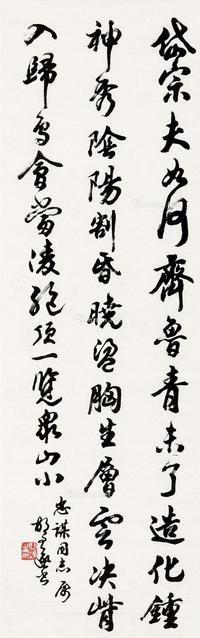 岱宗夫如何齊魯青未了造化鍾
神秀陰陽割昏曉盪胸生層雲决眥
入歸鳥會當凌絕頂一覽衆山小
忠謀同志屬